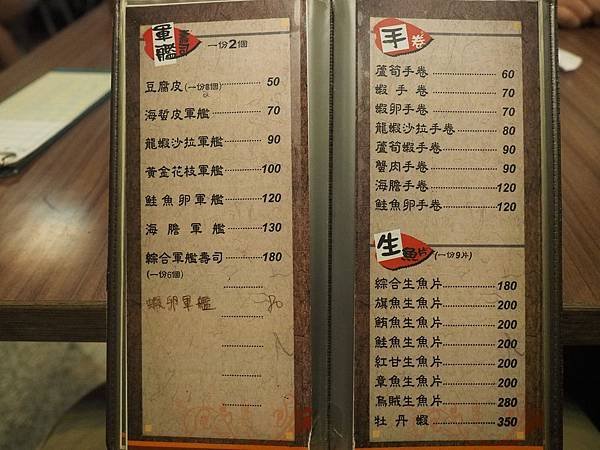 軍艦壽司 一份2個
豆腐皮(一份8個) 50
海蜇皮軍艦 70
龍蝦沙拉軍艦 90
黃金花枝軍艦 100
鮭魚卵軍艦 120
海膽軍艦 130
綜合軍艦壽司 180
(一份6個)
蝦卵軍艦
手卷
蘆筍手卷 60
蝦手卷 70
蝦卵手卷 70
龍蝦沙拉手卷 80
蘆筍蝦手卷 90
蟹肉手卷 90
海膽手卷 120
鮭魚卵手卷 120
生魚片 (一份9片)
綜合生魚片 180
旗魚生魚片 200
鮪魚生魚片 200
鮭魚生魚片 200
紅甘生魚片 200
章魚生魚片 200
烏賊生魚片 280
牡丹蝦 350